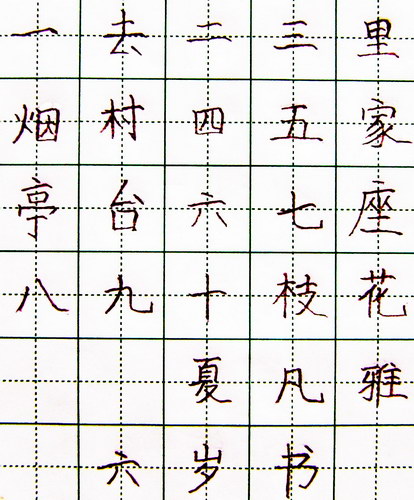 一去二三里
烟村四五家
亭台六七座
八九十枝花
夏凡雅
六岁书